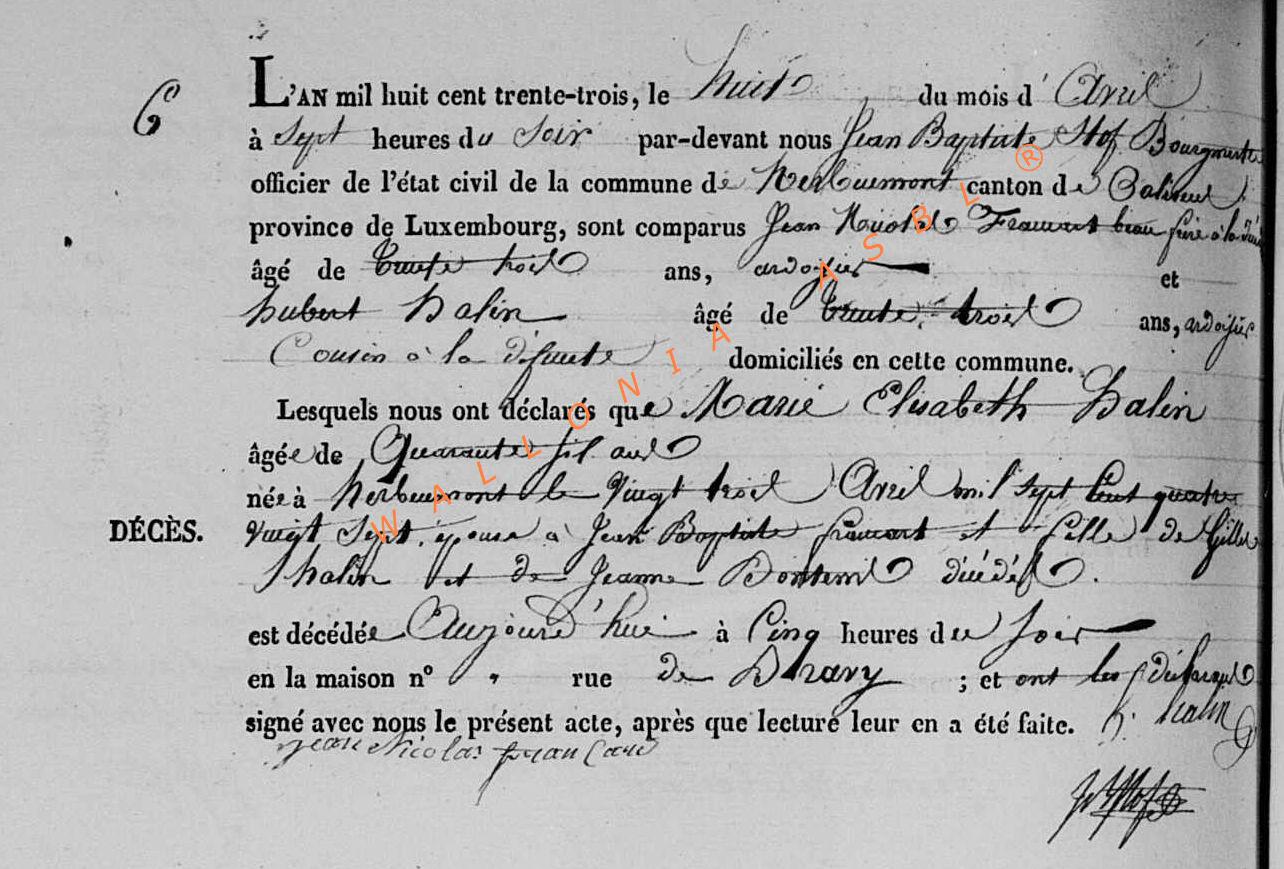 6
L'AN mil huit cent trente-trois, le huit du mois d' Avril
à Sept heures du Soir par-devant nous Jean Baptiste Stof Bourgmestre
officier de l'état civil de la commune de Herbeumont canton de Paliseul
province de Luxembourg, sont comparus Jean Nicolas Framart beau frère à la
âgé de trente trois ans, ardoisier et
hubert halin âgé de trente trois ans, ardoisier
Cousin à la défunte domiciliés en cette commune.
Lesquels nous ont déclarés que Marie Elisabeth halin
âgée de Quarante six ans
née à herbeumont le Vingt trois Avril mil sept Cent quatre
DÉCÈS.
vingt Sept, épouse à Jean Baptiste framart et fille de Gilles
halin et de Jeanne décédés.
est décédée Aujourd'hui à Cinq heures du soir
en la maison n° " rue de ; et ont les
signé avec nous le présent acte, après que lecture leur en a été faite. h. halin
jean Nicolas
WALLONIA ASBL ®